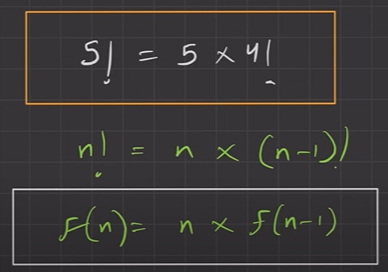 5! = 5 × 4!
n! = n × (n-1)!
f(n) = n × f(n-1)